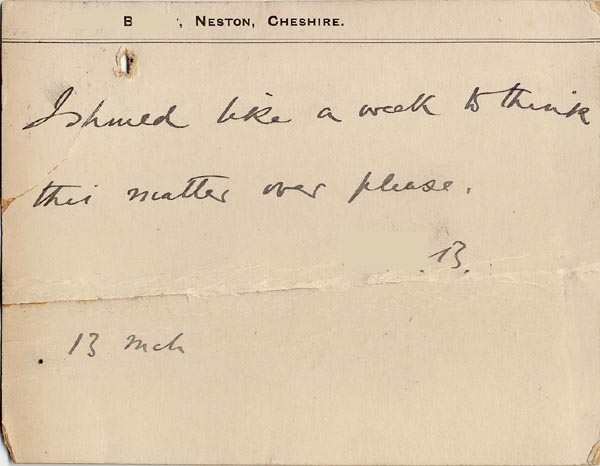 B , NESTON, CHESHIRE.
I should like a week to think
this matter over please.
B.
13 Mch